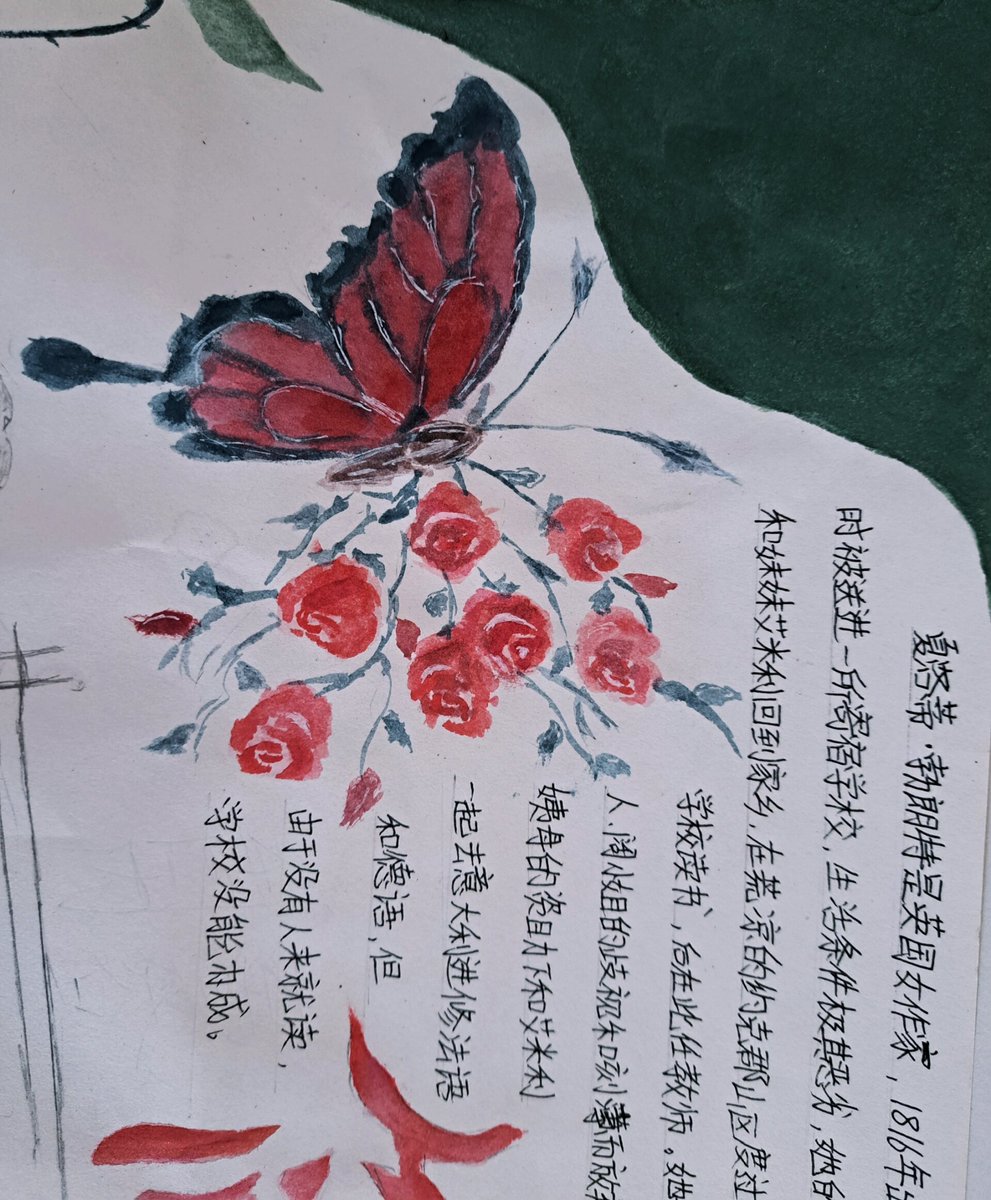 夏洛蒂·勃朗特是英国女作家，1816年
时被送进一所阔宿学校，生活条件极其恶劣，她的
和妹妹艾米利回到家乡，在荒凉的约克郡山区度过
学校读书，后在此任教师。她
人、阔小姐的歧视和刻薄而放
姨母的资助下和艾米利
一起去意大利进修法语
和德语，但
由于没有人来就读，
学校没能办成。